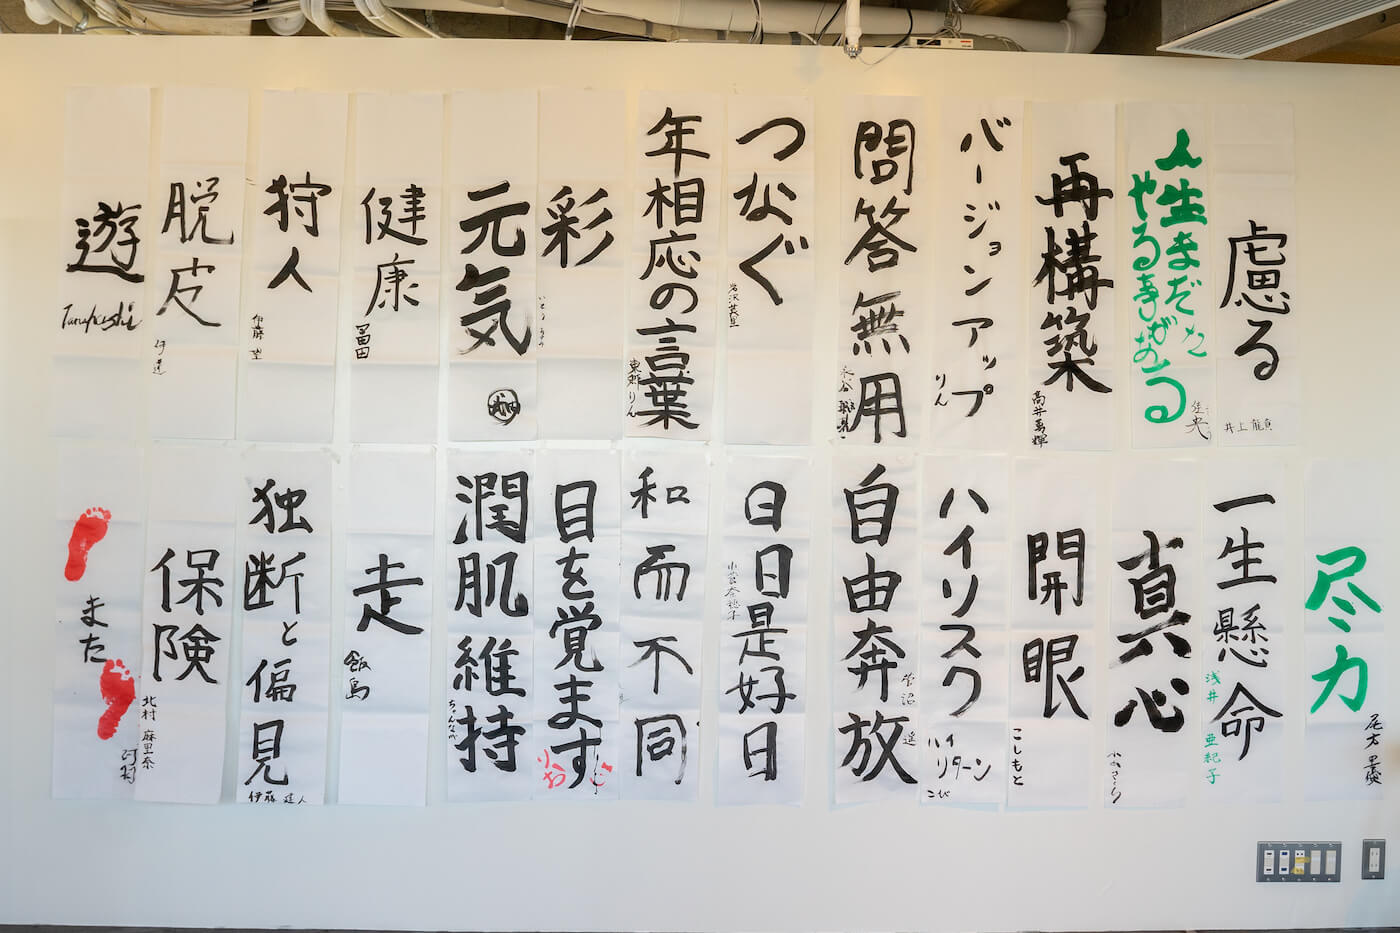 慮る
井上龍貞
人生まだまだ
やる事がある
佳央
再構築
高井勇輝
バージョンアップ
りん
問答無用
つなぐ
年相応の言葉
東郷りん
彩
元気
健康
冨田
狩人
伊藤 望
脱皮
伊達
遊
尽力
一生懸命
浅井 亜紀子
真心
開眼
こしもと
ハイリスク
ハイリターン
こび
自由奔放
菅沼 遥
日日是好日
和而不同
目を覚ます
潤肌維持
走
飯島
独断と偏見
伊藤 建人
保険
北村 麻里奈
また